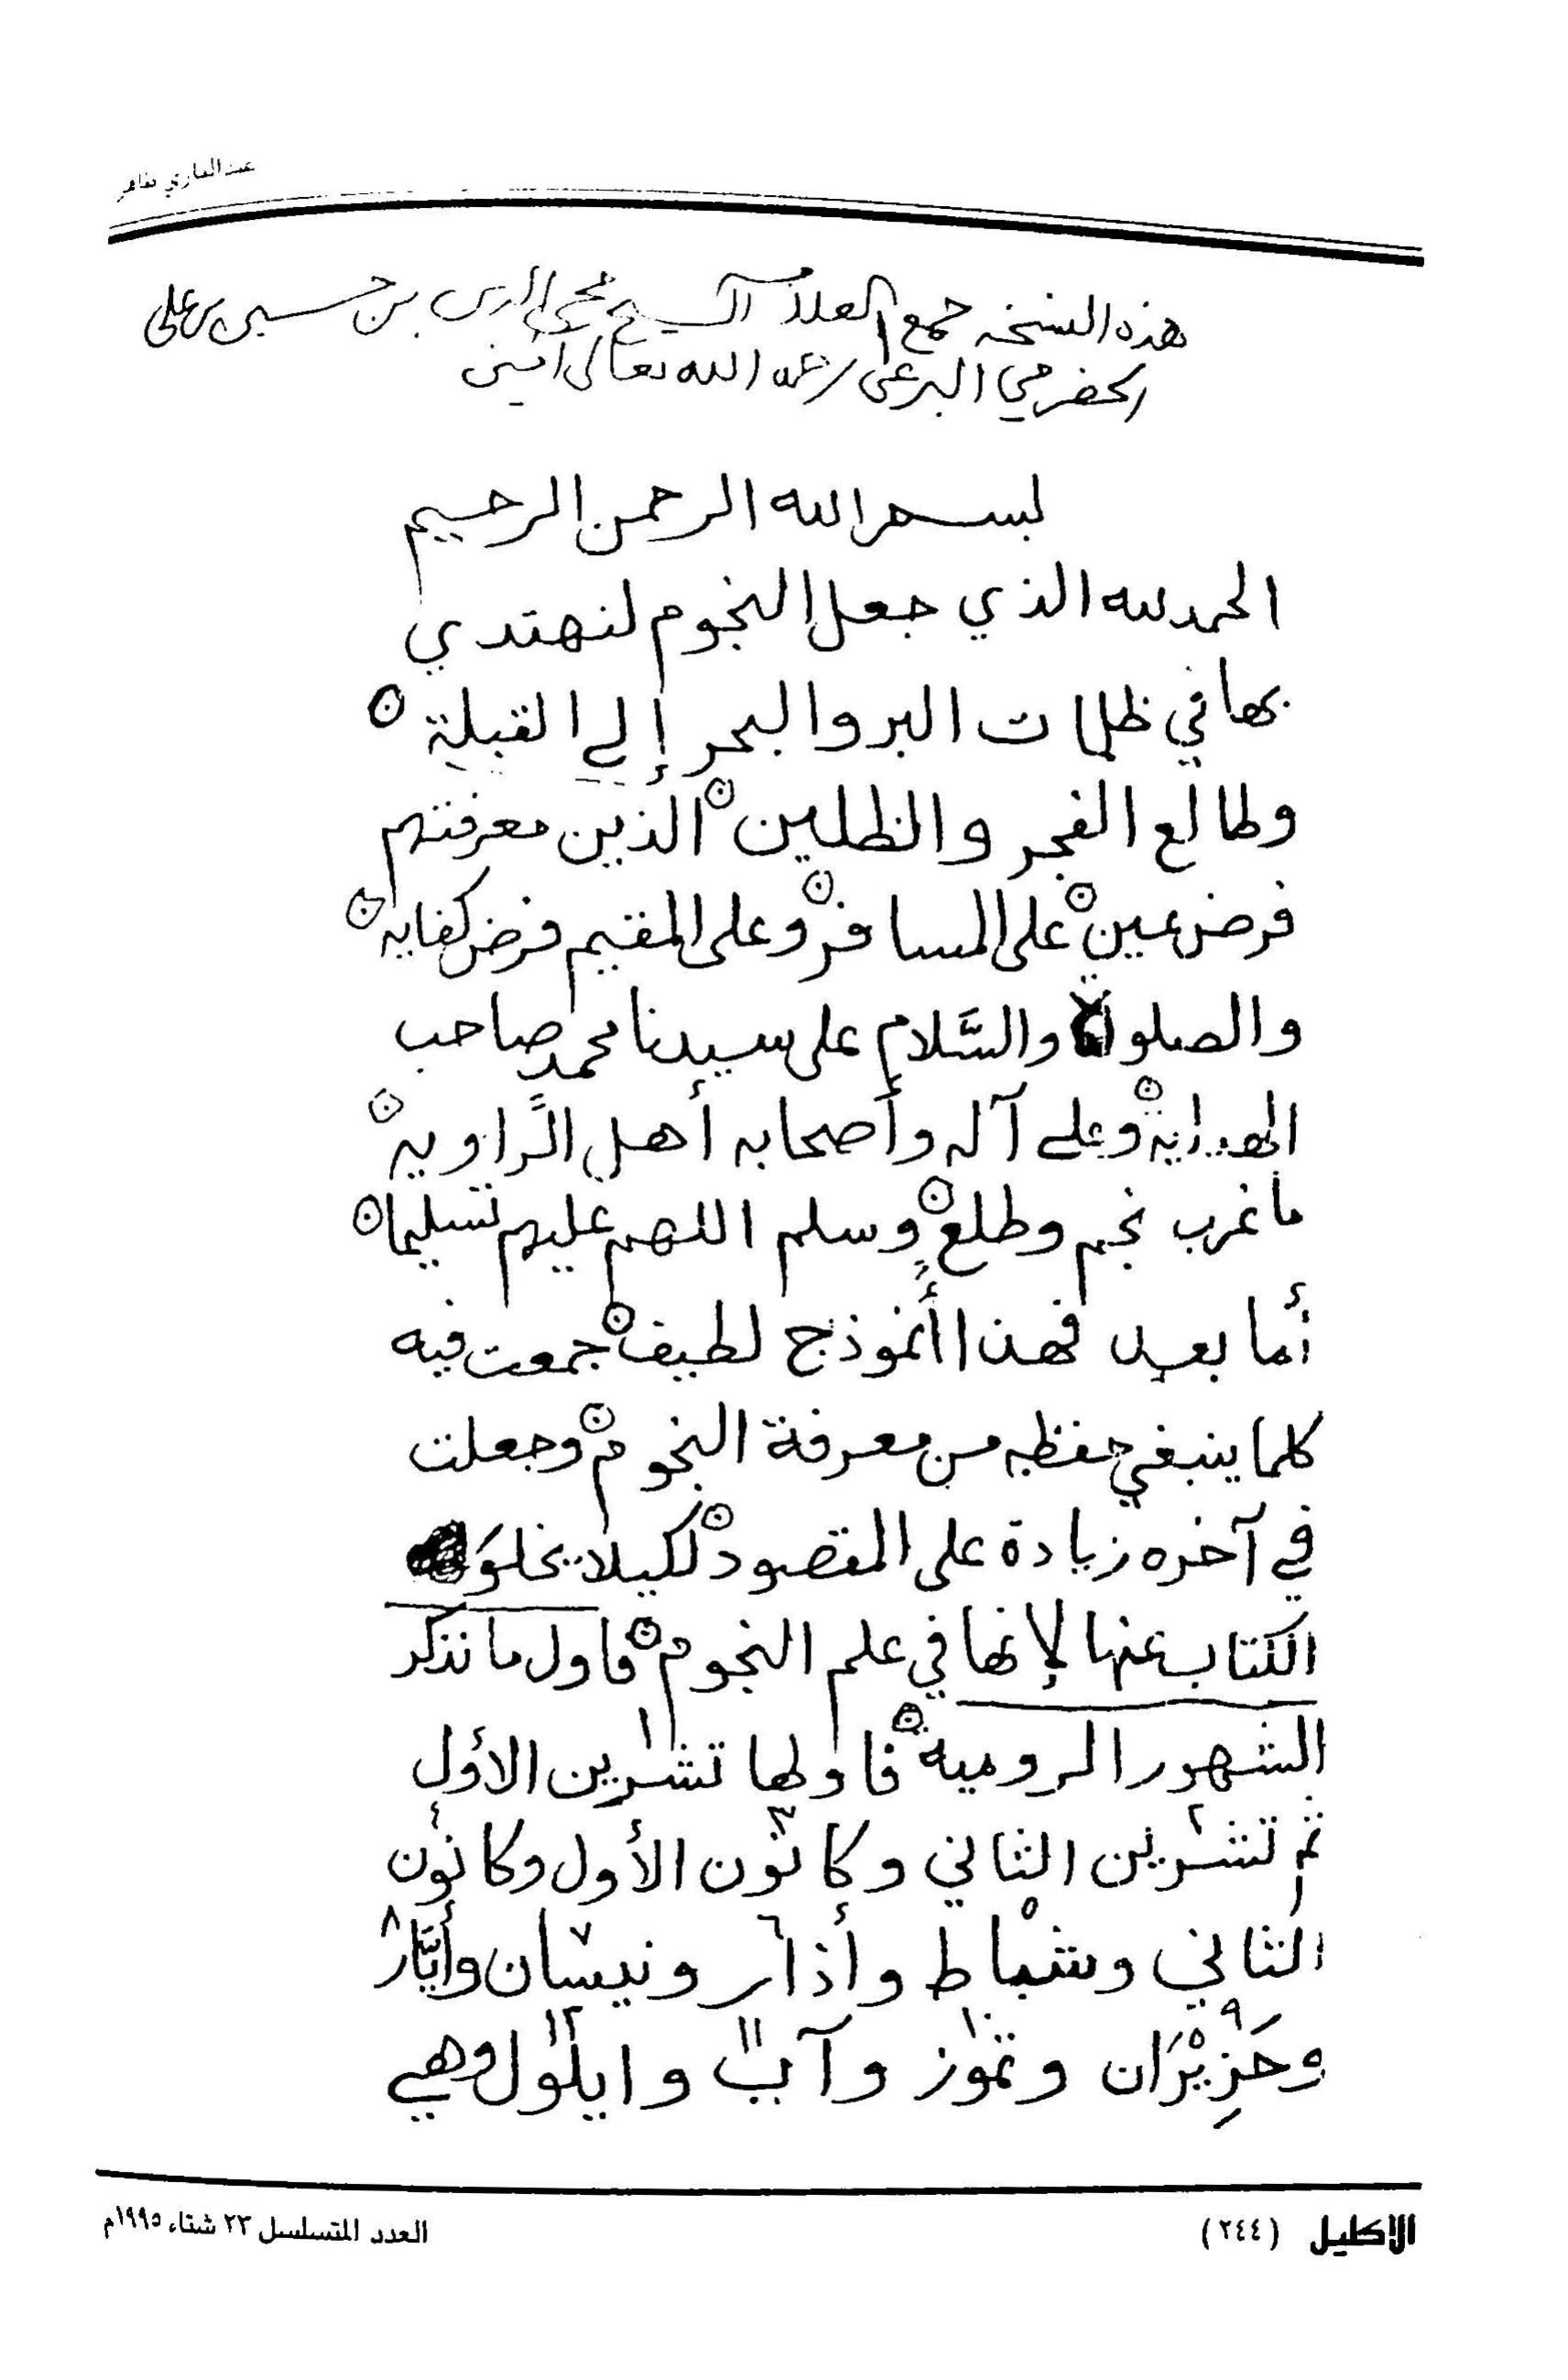 عبدالباري طاهر
هذه النسخه جمع العلامه الشيخ بن حسين بن علي
الحضرمي البرعي رحمه الله تعالى امين
بسم الله الرحمن الرحيم
الحمدلله الذي جعل النجوم لنهتدي
بها في ظلمات البر والبحر إلى القبلة
وطالع الفجر والظلين الذين معرفتهم
فرض عين على المسافر وعلى المقيم فرض كفايه
والصلوة والسَّلام على سيدنا محمد صاحب
الهدايه وعلى آله وأصحابه أهل الرَّاويه
ما غرب نجم وطلع وسلم اللهم عليهم تسليما
أما بعد فهذا أنموذج لطيف جمعت فيه
كلما ينبغي حفظه من معرفة النجوم وجعلت
في آخره زيادة على المقصود لكيلا يخلوَ
الكتاب عنها لإنها في علم النجوم فاول ما نذكر
الشهور الروميه فاولها تشرين الأول ١
ثم تشرين ٢ الثاني وكانون ٣ الأول وكانون ٤
الثاني وشباط ٥ وأذار ٦ ونيسان ٧ وأيَّار ٨
وحَزِيْرَان ٩ وتموز ١٠ وآب ١١ وايلول ١٢ وهي
الاكليل (٢٤٤) العدد المتسلسل ٢٣ شتاء ١٩٩٥م